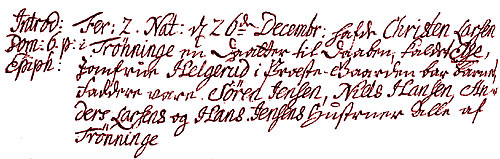 Introd: Fer: 2. Nat: d 26de Decembr: hafde Christen Larsen
Dom: 6. p: i Trönninge en Daatter til Daaben, kaldet
Epiph: Jomfrue Helgerud i Præste-Gaarden bar barnet,
Faddere vare. Sören Jensen, Niels Hansen, An-
ders Larsens og Hans Jensens Hustruer Alle af
Trönninge